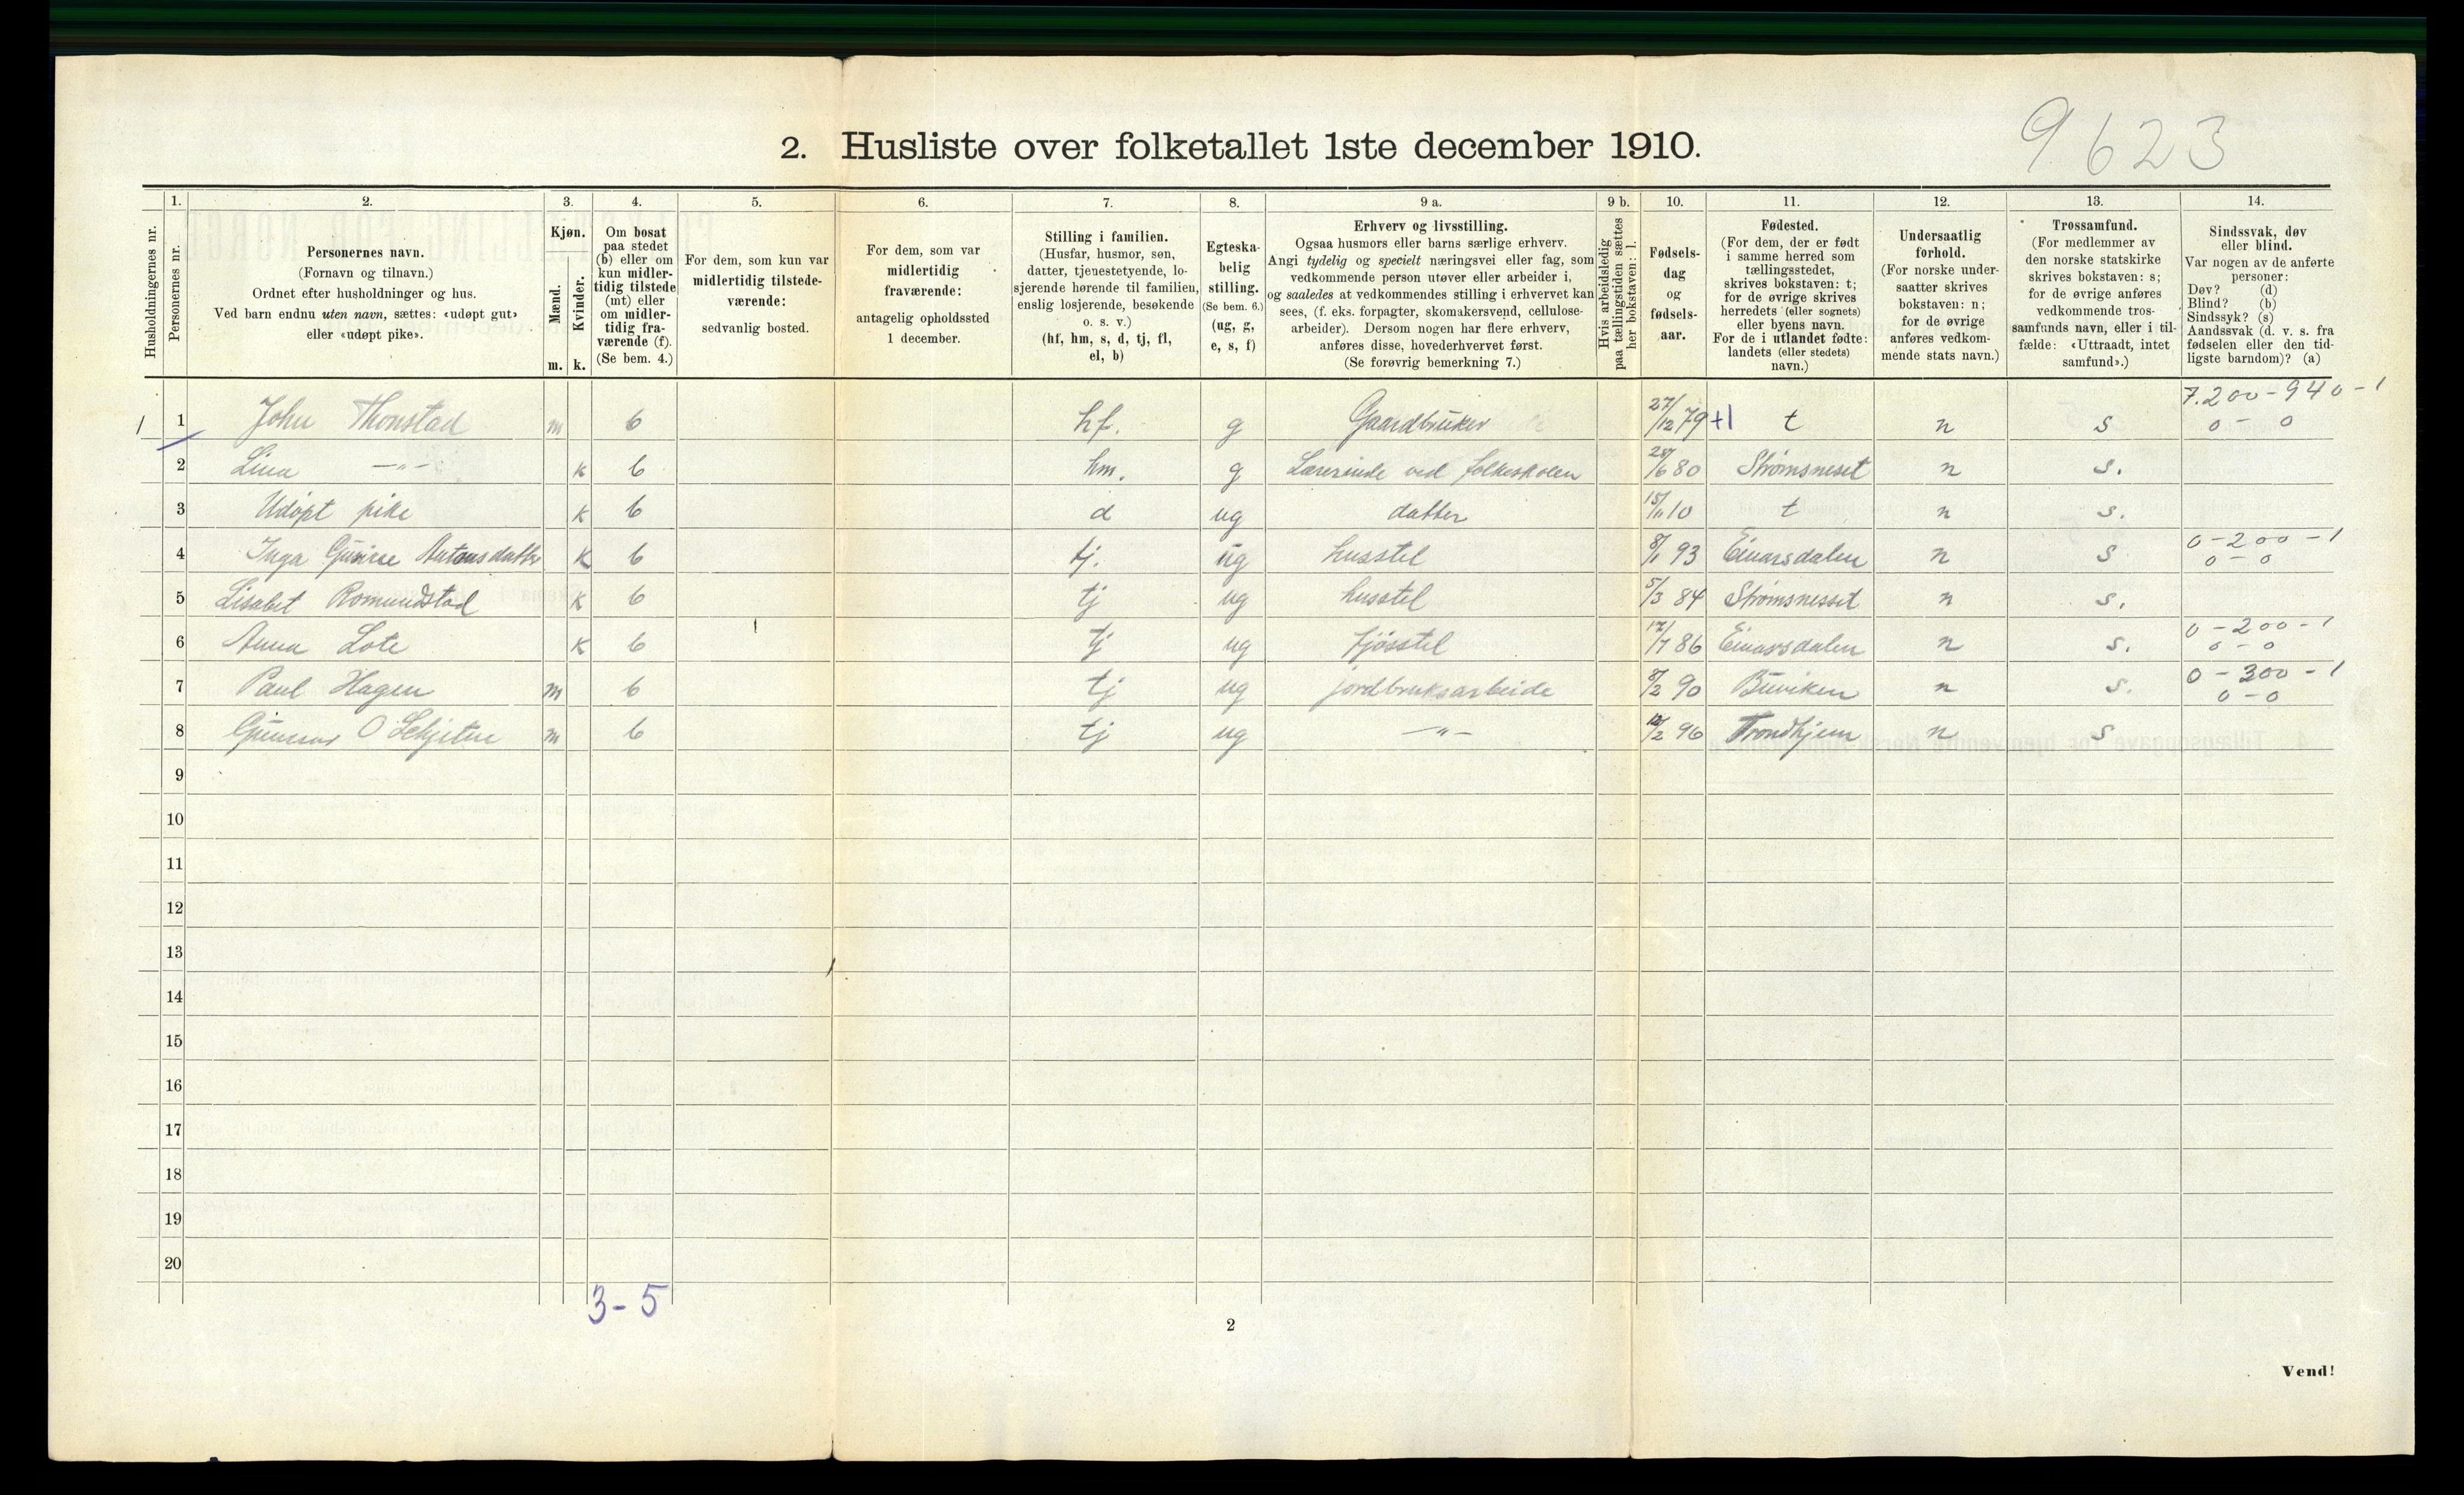 9623
2. Husliste over folketallet 1ste december 1910.
Husholdningernes nr.
1.
Personernes nr.
2.
Personernes navn.
(Fornavn og tilnavn.)
Ordnet efter husholdninger og hus.
Ved barn endnu uten navn, sættes: «udøpt gut»
eller «udøpt pike».
3.
Kjøn.
Mænd.
Kvinder.
m. k.
4.
Om bosat
paa stedet
(b) eller om
kun midler-
tidig tilstede
(mt) eller
om midler-
tidig fra-
værende (f).
(Se bem. 4.)
5.
For dem, som kun var
midlertidig tilstede-
værende:
sedvanlig bosted.
6.
For dem, som var
midlertidig
fraværende:
antagelig opholdssted
1 december.
7.
Stilling i familien.
(Husfar, husmor, søn,
datter, tjenestetyende, lo-
sjerende hørende til familien,
enslig losjerende, besøkende
o. s. v.)
(hf, hm, s, d, tj, fl,
el, b)
8.
Egteska-
belig
stilling.
(Se bem. 6.)
(ug, g,
e, s, f)
9 a.
Erhverv og livsstilling.
Ogsaa husmors eller barns særlige erhverv.
Angi tydelig og specielt næringsvei eller fag, som
vedkommende person utøver eller arbeider i,
og saaledes at vedkommendes stilling i erhvervet kan
sees, (f. eks. forpagter, skomakersvend, cellulose-
arbeider). Dersom nogen har flere erhverv,
anføres disse, hovederhvervet først.
(Se forøvrig bemerkning 7.)
9 b.
Hvis arbeidsledig
paa tællingstiden sættes
her bokstaven: l.
10.
Fødsels-
dag
og
fødsels-
aar.
11.
Fødested.
(For dem, der er født
i samme herred som
tællingsstedet,
skrives bokstaven: t;
for de øvrige skrives
herredets (eller sognets)
eller byens navn.
For de i utlandet fødte:
landets (eller stedets)
navn.)
12.
Undersaatlig
forhold.
(For norske under-
saatter skrives
bokstaven: n;
for de øvrige
anføres vedkom-
mende stats navn.)
13.
Trossamfund.
(For medlemmer av
den norske statskirke
skrives bokstaven: s;
for de øvrige anføres
vedkommende tros-
samfunds navn, eller i til-
fælde: «Uttraadt, intet
samfund».)
14.
Sindssvak, døv
eller blind.
Var nogen av de anførte
personer:
Døv? (d)
Blind? (b)
Sindssyk? (s)
Aandssvak (d. v. s. fra
fødselen eller den tid-
ligste barndom)? (a)
7.200-940-1
1 1 John Thonstad m b hf. g Gaardbruker 27/12 79 +1 t n s 0 - 0
2 Lina —„— k b hm. g Lærerinde ved folkeskolen 28/6 80 Strømsneset n s.
3 Udøpt pike k b d ug datter 15/11 10 t n s.
0-200-1
4 Inga Gurine Antonsdatter k b tj. ug husstel 8/1 93 Einarsdalen n s 0-0
5 Lisabet Romundstad k b tj ug husstel 5/3 84 Strømsnesset n s.
0-200-1
6 Anna Lote k b tj ug fjøsstel 17/7 86 Einarsdalen n s. 0-0
0-300-1
7 Paul Hagen m b tj ug jordbruksarbeide 8/2 90 Buviken n s. 0-0
8 Gunnar O m b tj ug —„— 12/2 96 Trondhjem n s
9
10
11
12
13
14
15
16
17
18
19
20
3-5
2
Vend!